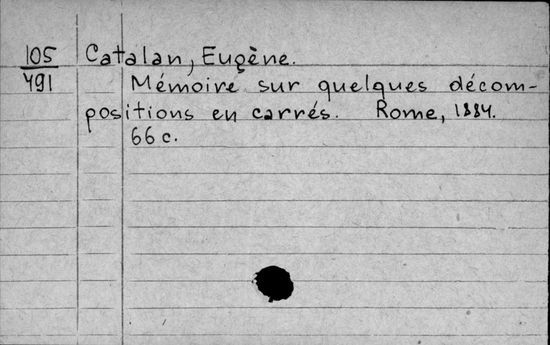 105 Catalan, Eugène.
491 Mémoire sur quelques décom-
positions en carrés. Rome, 1884.
66 c.